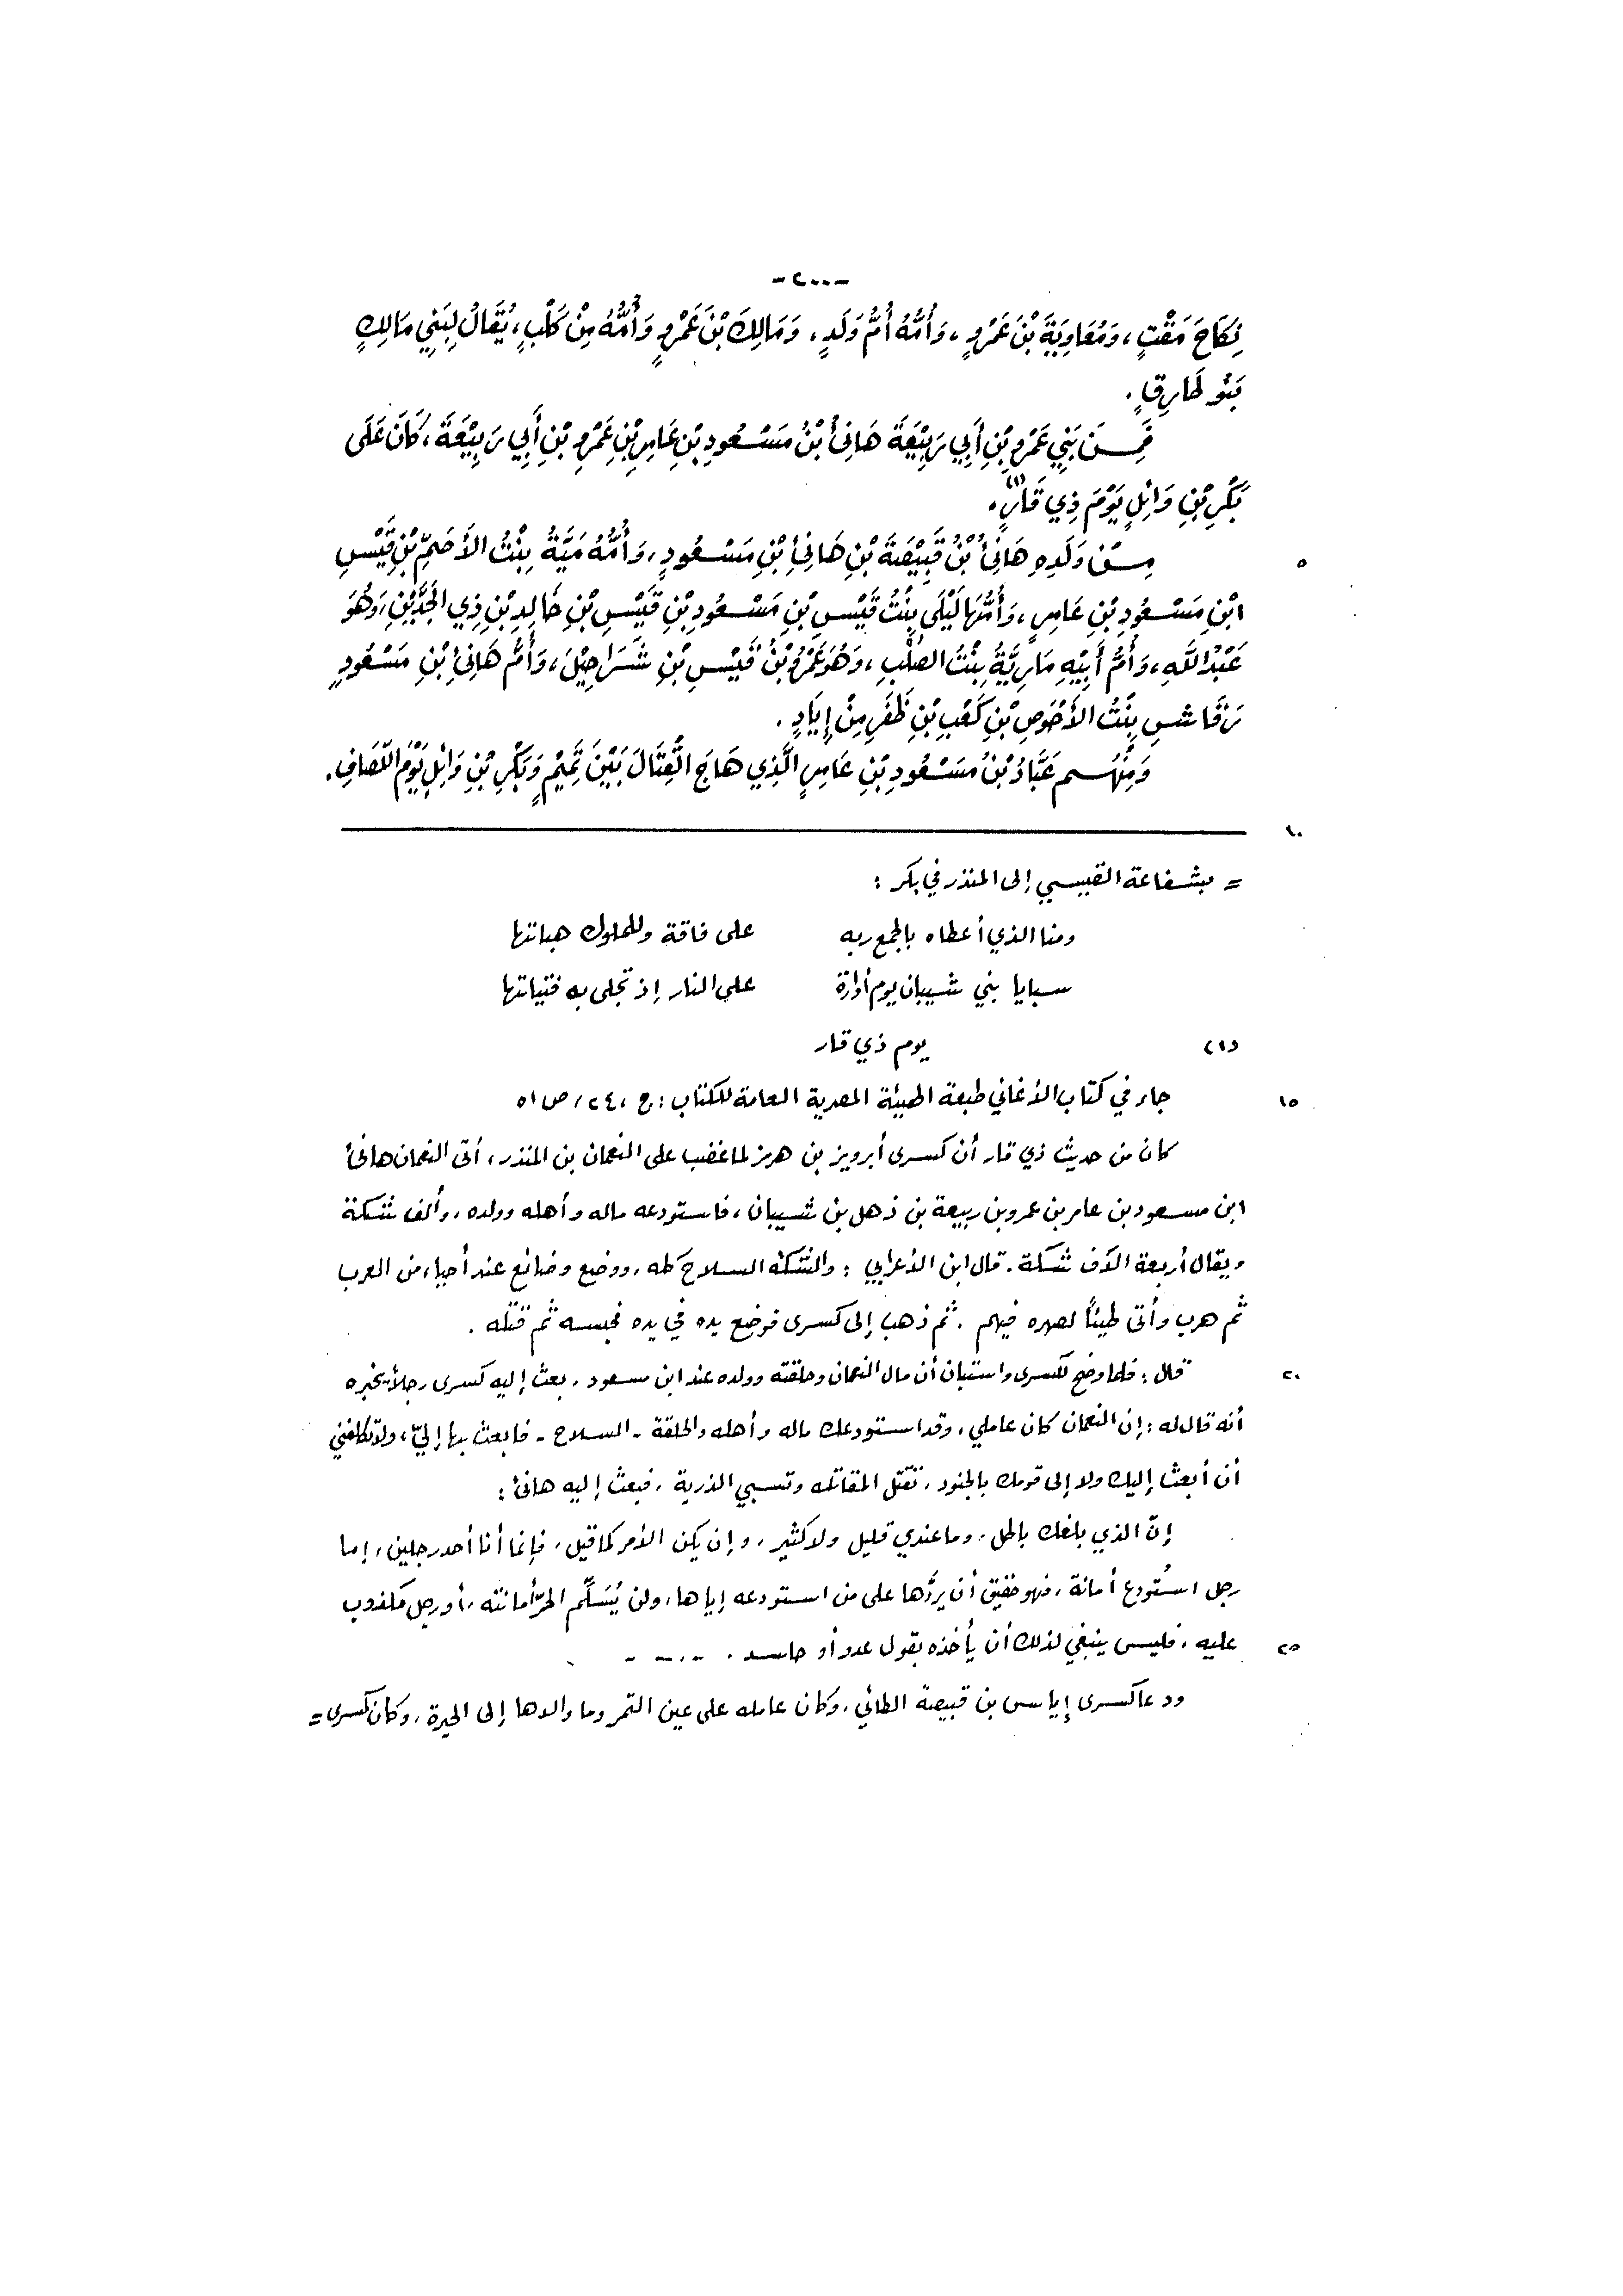 -٢٠٠-
نِكَاحَ مَقْتٍ، وَمُعَاوِيَةَ بْنَ عَمْرٍو، وَأُمُّهُ أُمُّ وَلَدٍ، وَمَالِكَ بْنَ عَمْرٍو وَأُمُّهُ مِنْ كَلْبٍ، يُقَالُ لِبَنِي مَالِكٍ
بَنُو طَارِقٍ.
فَمِنْ بَنِي عَمْرِو بْنِ أَبِي رَبِيْعَةَ هَانِئُ بْنُ مَسْعُودِ بْنِ عَامِرِ بْنِ عَمْرِو بْنِ أَبِي رَبِيْعَةَ، كَانَ عَلَى
بَكْرِ بْنِ وَائِلٍ يَوْمَ ذِي قَارٍ(١).
٥ مِنْ وَلَدِهِ هَانِئُ بْنُ قَبِيْصَةَ بْنِ هَانِئِ بْنِ مَسْعُودٍ، وَأُمُّهُ مَيَّةُ بِنْتُ الأَصَمِّ بْنِ قَيْسِ
ابْنِ مَسْعُودِ بْنِ عَامِرٍ، وَأُمُّهَا لَيْلَى بِنْتُ قَيْسِ بْنِ مَسْعُودِ بْنِ قَيْسِ بْنِ خَالِدِ بْنِ ذِي الجَدَّيْنِ، وَهُوَ
عَبْدُ اللَّهِ، وَأُمُّ أَبِيْهِ مَارِيَّةُ بِنْتُ الصُّلْبِ، وَهُوَ عَمْرُو بْنُ قَيْسِ بْنِ شَرَاحِيْلَ، وَأُمُّ هَانِئِ بْنِ مَسْعُودٍ
رَقَاشِ بِنْتُ الأَحْوَصِ بْنِ كَعْبِ بْنِ ظَفَرٍ مِنْ إِيَادٍ.
وَمِنْهُم عَبَّادُ بْنُ مَسْعُودِ بْنِ عَامِرٍ الَّذِي هَاجَ القِتَالَ بَيْنَ تَمِيْمٍ وَبَكْرِ بْنِ وَائِلٍ يَوْمَ اللَّصَافِ.
١٠
= بشفاعة القيسي إلى المنذر في بكر :
ومنا الذي أعطاه بالجمع ربه على فاقة وللملوك هباتها
سبايا بني شيبان يوم أوارة على النار إذ تجلى به فتياتها
(١) يوم ذي قار
١٥ جاء في كتاب الأغاني طبعة الهيئة المصرية العامة للكتاب : ج ٢٤، ص ٥١
كان من حديث ذي قار أن كسرى أبرويز بن هرمز لما غضب على النعمان بن المنذر، أتى النعمان هانئ
ابن مسعود بن عامر بن عمرو بن ربيعة بن ذهل بن شيبان، فاستودعه ماله وأهله وولده، وألف شكة
ويقال أربعة آلاف شكة. قال ابن الأعرابي : والشكة السلاح كله، ووضع وضائع عند أحياء من العرب
ثم هرب وأتى طيئاً لصهره فيهم . ثم ذهب إلى كسرى فوضع يده في يده فحبسه ثم قتله .
٢٠ قال : فلما وضح لكسرى واستبان أن مال النعمان وحلقته وولده عند ابن مسعود، بعث إليه كسرى رجلاً يخبره
أنه قال له : إن النعمان كان عاملي، وقد استودعك ماله وأهله والحلقة - السلاح - فابعث بها إليّ، ولا تكلفني
أن أبعث إليك ولا إلى قومك بالجنود، تقتل المقاتله وتسبي الذرية، فبعث إليه هانئ :
إنّ الذي بلغك باطل، وما عندي قليل ولا كثير، وإن يكن الأمر كما قيل، فإنما أنا أحد رجلين، إما
رجل استُودع أمانة، فهو حقيق أن يردَّها على من استودعه إياها، ولن يُسَلِّم الحرّ أمانته، أو رجل مكذوب
٢٥ عليه، فليس ينبغي لذلك أن يأخذه بقول عدو أو حاسد . - . - -
ودعا كسرى إياس بن قبيصة الطائي، وكان عامله على عين التمر وما والاها إلى الحيرة، وكان كسرى =